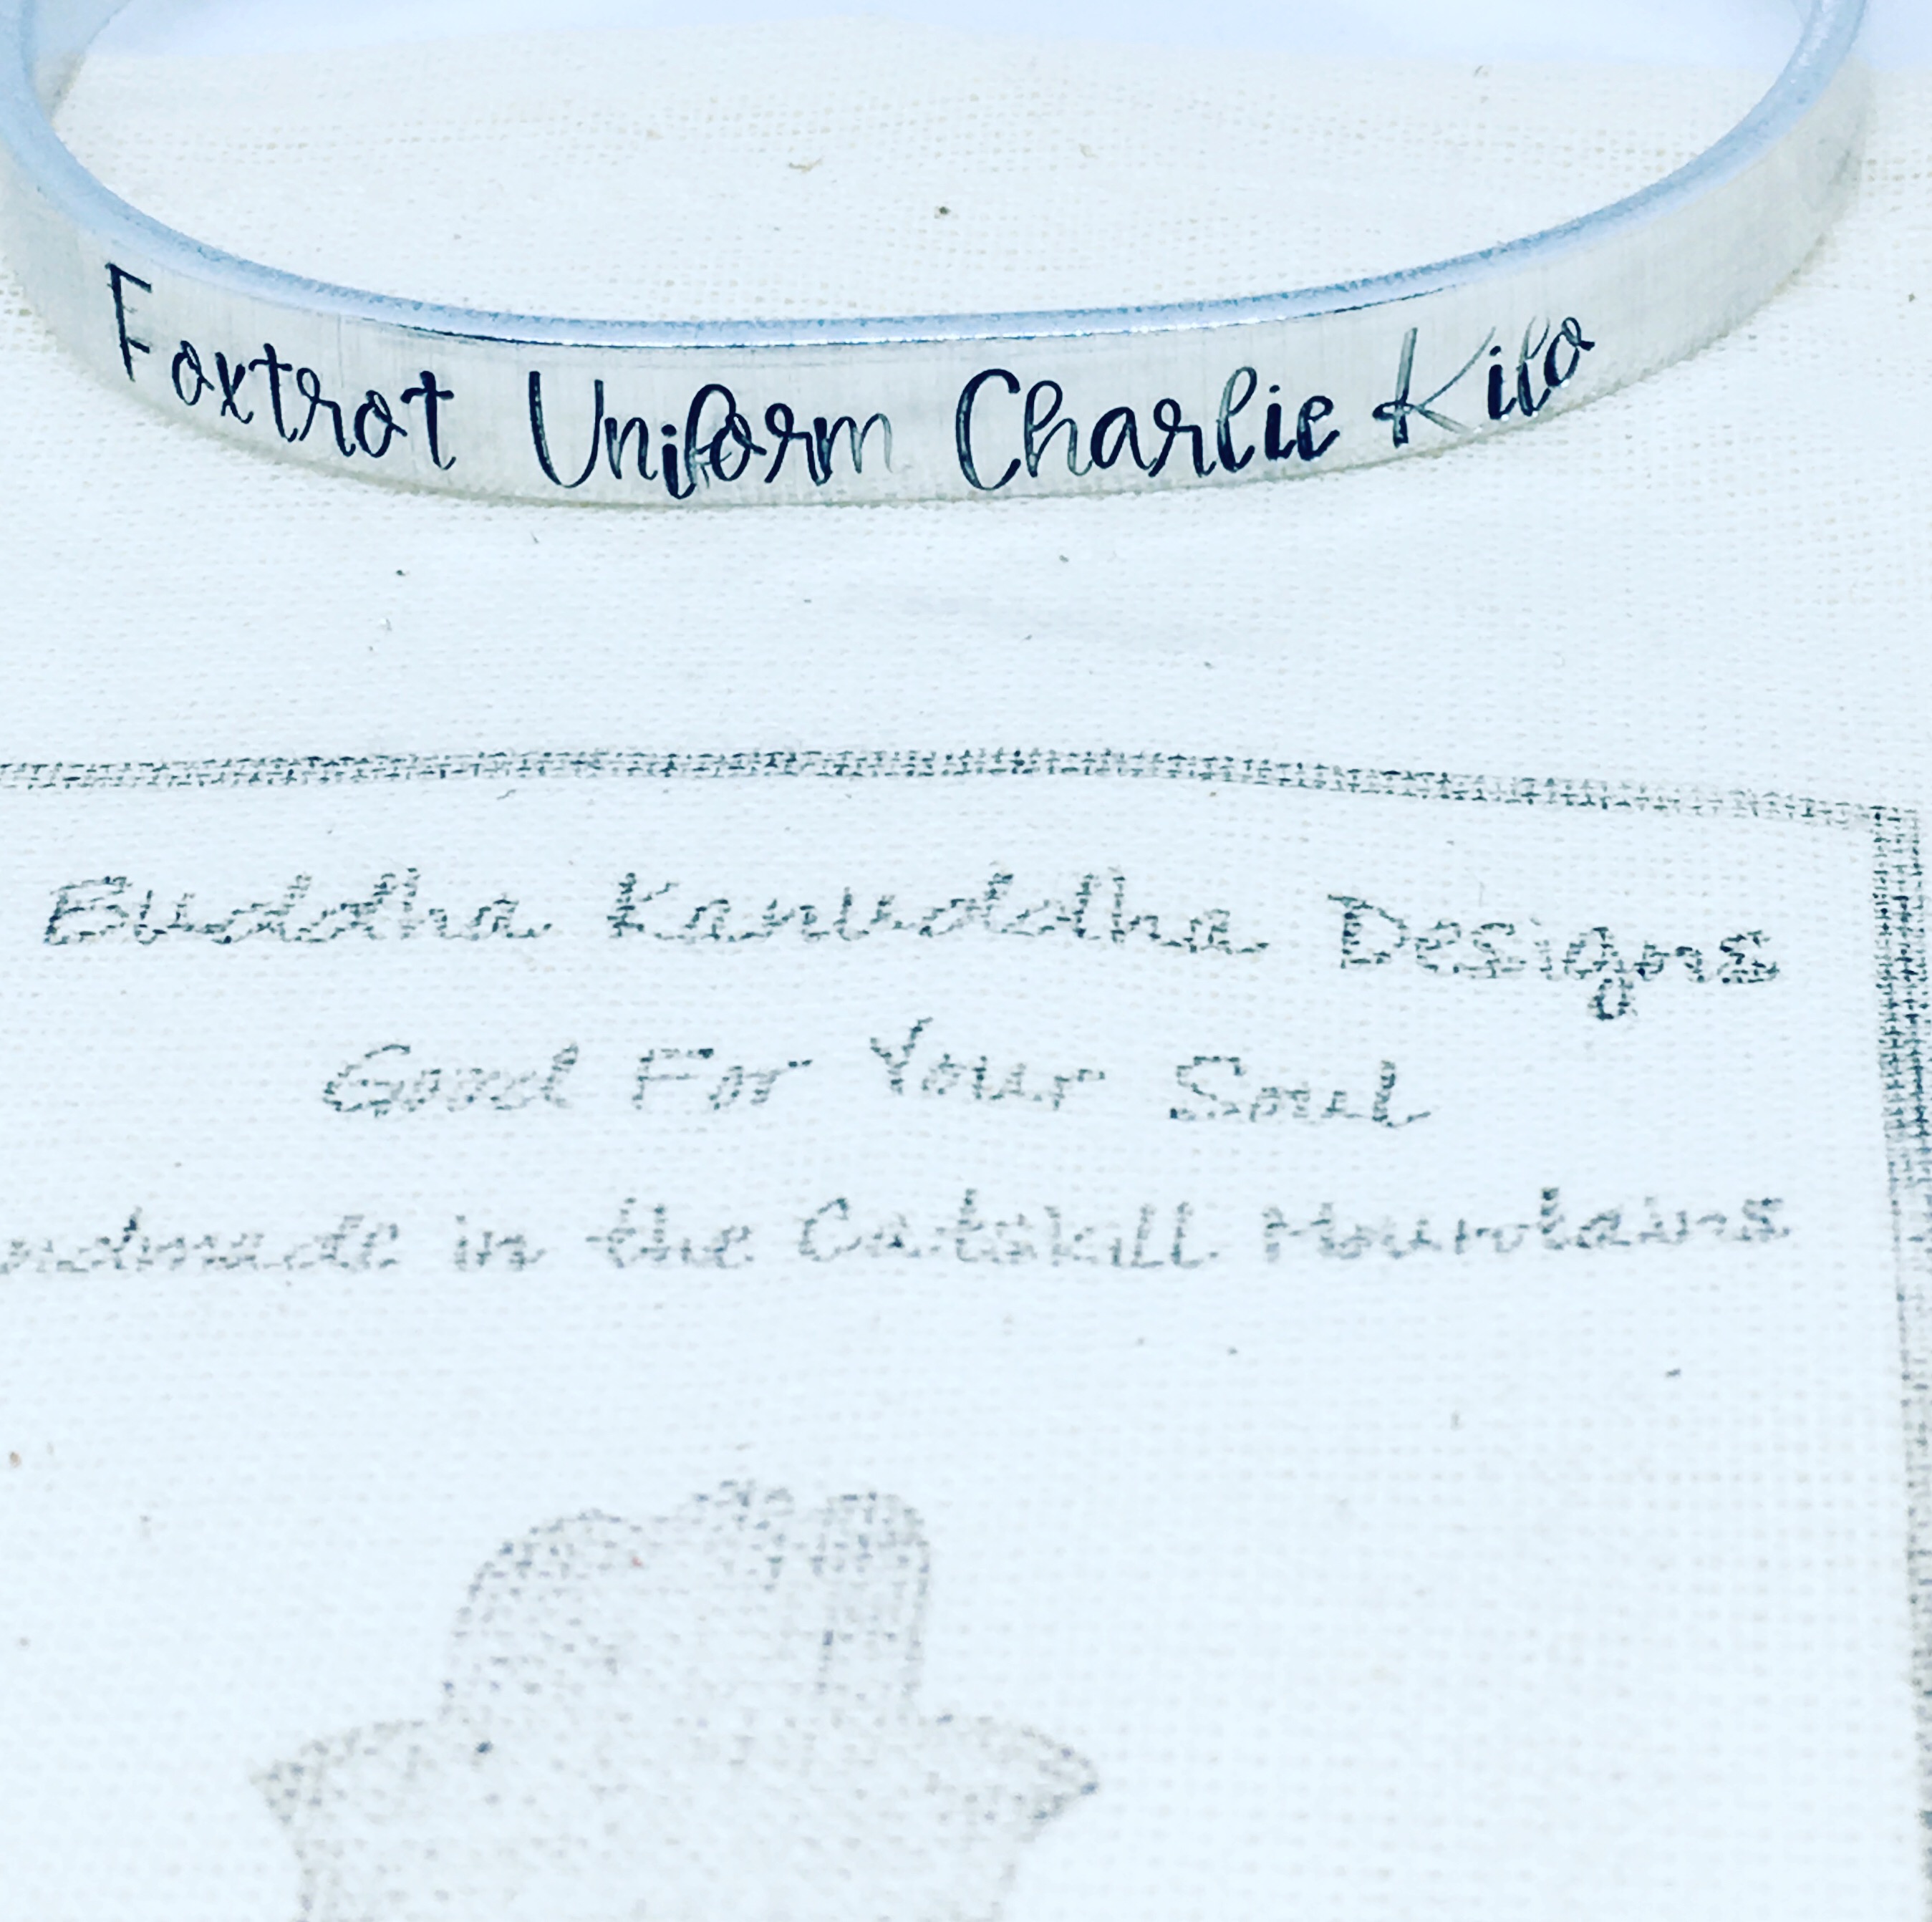 Foxtrot Uniform Charlie Kilo
Buddha Kanuddha Designs
Good For Your Soul
ndmade in the Catskill Mountains